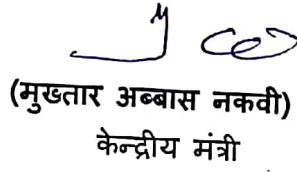 (मुख्तार अब्बास नकवी)
केन्द्रीय मंत्री